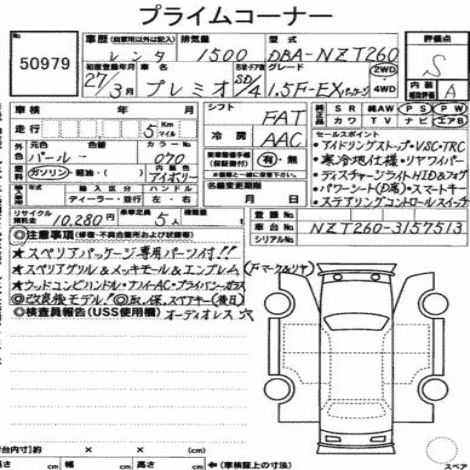 プライムコーナー
50979
車歴 (自家用以外は記入) レンタ
排気量 1500
型式 DBA-NZT260
評価点 S
初度登録年月 27/3月
車名 プレミオ
形状・ドア数 SD/4
グレード 1.5F-EXパッケージ
2WD・4WD
内装補助評価 A
車検 年 月
シフト FAT
純正品 SR 純AW PS PW
カワ TV ナビ エアB
走行 5Km マイル
冷房 AAC
セールスポイント
・アイドリングストップ・VSC・TRC
・寒冷地仕様・リヤワイパー
・ディスチャージライトHID&フォグ
・パワーシート(D席)・スマートキー
・ステアリングコントロールスイッチ
外色 元色 色替 カラーNo.
パールー 070
ガソリン・軽油・( ) 内装色 アイボリー
新車整備手帳(保証書付) 有・無
名義変更期限 月 日
輸入 入区分 ハンドル
ディーラー・並行 左・右
リサイクル預託金 10,280円
乗車定員 5人
登録No.
車台No. NZT260-3157513
シリアルNo.
◎注意事項(修復・不具合箇所および状態等)
★スペリアパッケージ専用パーツ付!!
★スペリアグリル&メッキモール&エンブレム(Fマーク&リヤ)
★ウッドコンビハンドル・ナノイーAC・プライバシーガラス
◎改良後モデル!◎取・保、スペアキー(後日)
◎検査員報告(USS使用欄) オーディオレス穴
荷台内寸)約 × × (cm)
長さ (cm) 幅 (cm) 高さ (cm) ←(車検証上の寸法)
スペア